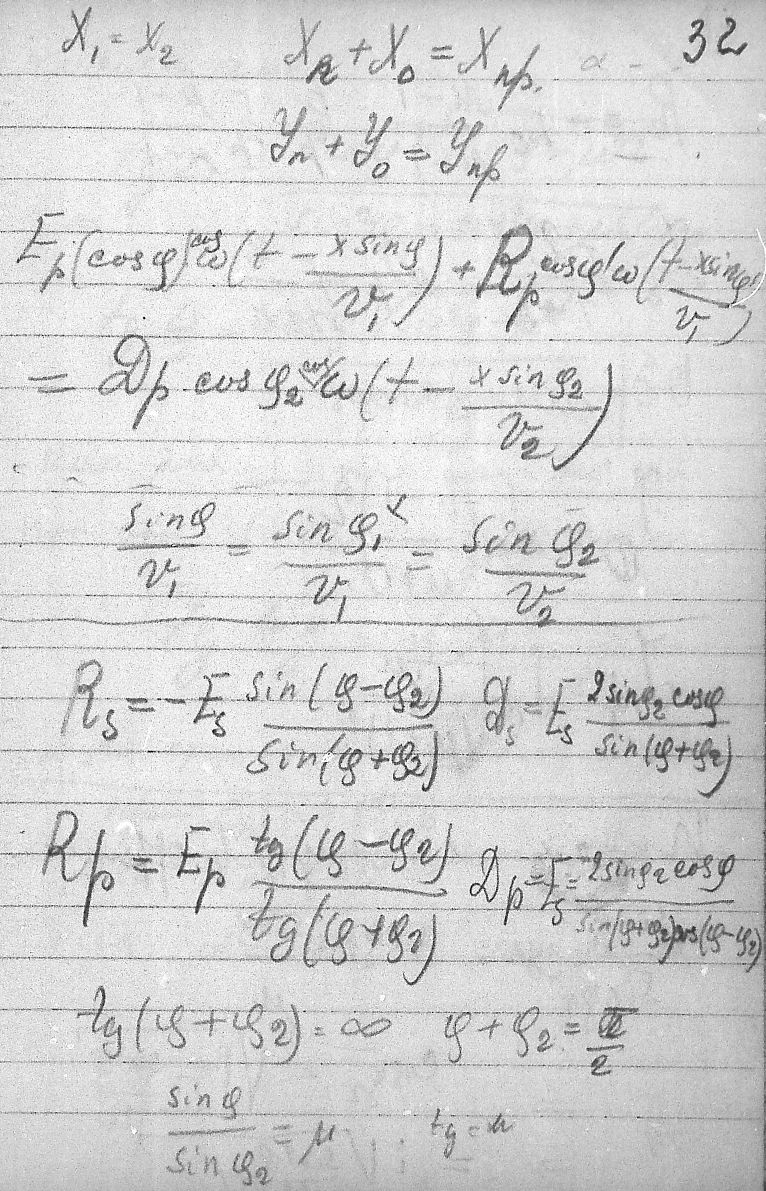 32
X₁ = X₂ Xₙ + X₀ = Xпр.
Yₙ + Y₀ = Yпр
E_p (cosφ) cos ω (t − x sinφ / v₁) + R_p cosφ' ω (t − x sinφ' / v₁)
= D_p cos φ₂ cos ω (t − x sin φ₂ / v₂)
sinφ / v₁ = sin φ₁ / v₁ = sin φ₂ / v₂
R_s = −E_s sin(φ−φ₂) / sin(φ+φ₂) D_s = E_s 2sinφ₂ cosφ / sin(φ+φ₂)
R_p = E_p tg(φ−φ₂) / tg(φ+φ₂) D_p = E_s = 2sinφ₂ cosφ / sin(φ+φ₂)cos(φ−φ₂)
tg(φ+φ₂) = ∞ φ+φ₂ = π/2
sinφ / sinφ₂ = μ tg = n